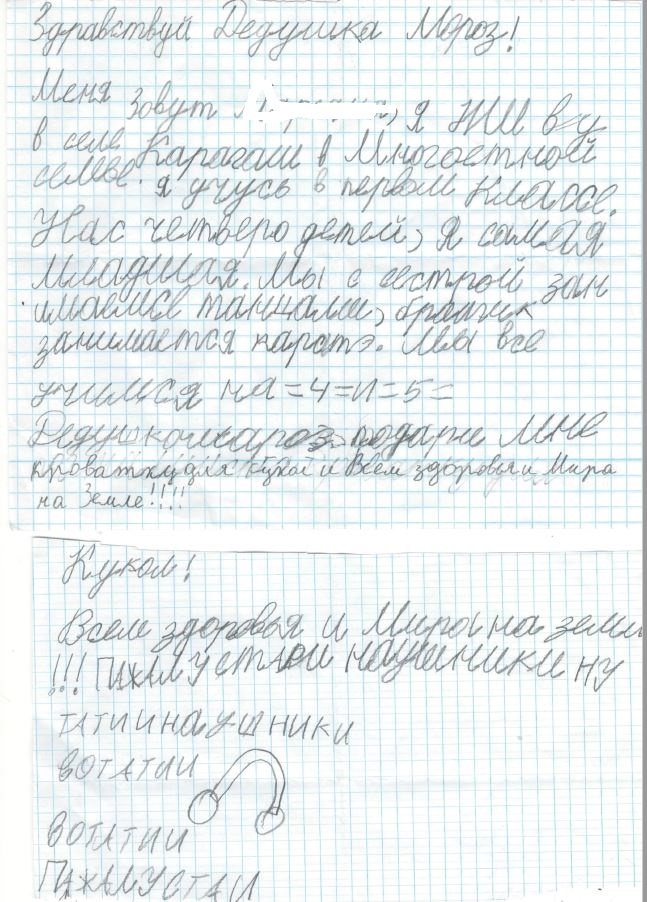 Здравствуй Дедушка Мороз!
Меня зовут я жи ву
в селе Карагаш в Многоетной
семье. я учусь в первом классе.
Нас четверо детей, я самая
младшая. Мы с сестрой зан
имаемся танцами, братик
занимается каратэ. Мы все
учимся на =4=и=5=
подари мне
кроватку для кукол и Всем здоровья и Мира
на Земле!!!!
Кукол!
Всем здоровья и Мира на земли
!!! ПАЖАЛУСТА И НАУШНИКИ НУ
ТАТИИ НАУШНИКИ
ВОТАТИИ
ВОТАТИИ
ПАЖАЛУСТА И